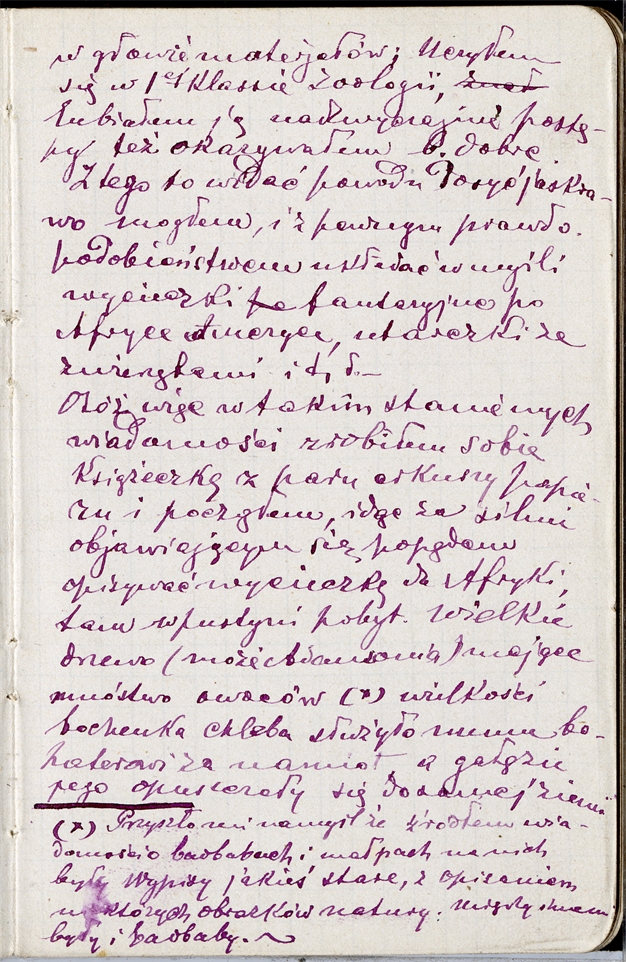 w głowie materjałów; Uczyłem
się w 1ej Klassie Zoologii, znał
lubiałem ją nadzwyczajnie postę-
py też okazywałem b. dobre
Z tego to widać powodu Dosyć jaskra-
wo mogłem, i z pewnym prawdo-
podobieństwem układać w myśli
wycieczki po fantazyjne po
Afryce Ameryce, utarczki ze
zwierzętami i t, d.—
Otóż więc w takim stanie mych
wiadomości zrobiłem sobie
Książeczkę z paru arkuszy papie-
ru i począłem, idąc za silnie
objawiającym się popędem
opisywać wycieczkę do Afryki,
tam w pustyni pobyt. Wielkie
drzewo (może Adansonia) mające
mnóstwo owoców (*) wielkości
bochenka chleba służyło memu bo-
haterowi za namiot a gałęzie
jego opuszczały się do samej ziemi
(*) Przyszło mi na myśl że źródłem wia-
domości o baobabach i małpach na nich
były Wypisy jakieś stare, z opisaniem
niektórych obrazków natury. Między innemi
były i baobaby.